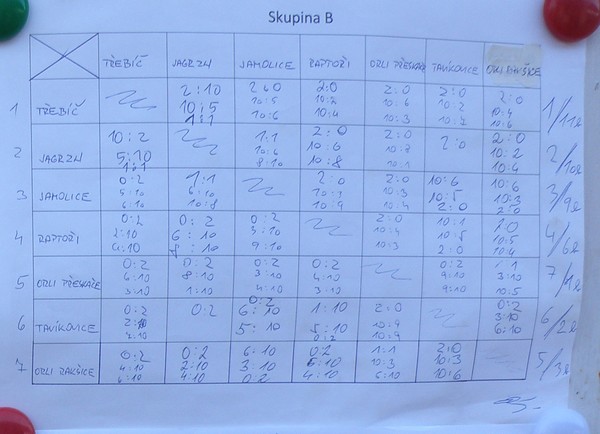 Skupina B
TŘEBÍČ JAGRZN JAMOLICE RAPTOŘI ORLI TAVÍKOVICE ORLI RAKŠICE
1 TŘEBÍČ 2:10 10:5 1:1 2:0 10:5 10:6 2:0 10:2 10:4 2:0 10:6 10:3 2:0 10:2 10:7 2:0 10:4 10:6 1/11b
2 JAGRZN 10:2 5:10 1:1 1:1 10:6 8:10 2:0 10:6 10:8 2:0 10:7 10:1 2:0 2:0 10:2 10:4 2/10b
3 JAMOLICE 0:2 5:10 6:10 1:1 6:10 10:8 2:0 10:9 2:0 10:3 10:4 10:6 10:5 2:0 10:6 10:3 2:0 3/9b
4 RAPTOŘI 0:2 2:10 4:10 0:2 6:10 8:10 0:2 9:10 2:0 10:4 10:3 10:1 10:5 2:0 10:5 10:4 4/6b
5 ORLI 0:2 6:10 3:10 0:2 8:10 1:10 0:2 3:10 4:10 0:2 4:10 3:10 0:2 9:10 1:1 3:10 10:5
6 TAVÍKOVICE 0:2 2:10 7:10 0:2 0:2 6:10 5:10 1:10 5:10 0:2 2:0 10:9 10:4 0:2 3:10 6:10 6/2b
7 ORLI RAKŠICE 0:2 4:10 6:10 0:2 2:10 4:10 6:10 3:10 0:2 0:2 5:10 4:10 1:1 10:3 6:10 2:0 10:3 10:6 5/3b